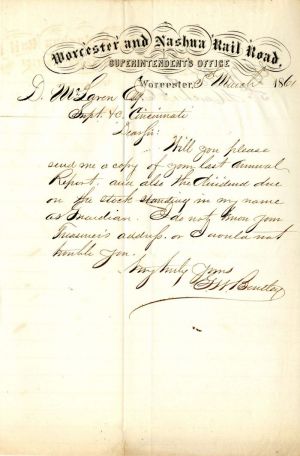 Worcester and Nashua Rail Road,
SUPERINTENDENT'S OFFICE
Worcester, 5th March 1861
D. McLaren Esq
Supt &c. Cincinnati
Dear Sir:
Will you please
send me a copy of your last Annual
Report, and also the dividend due
on the stock standing in my name
as Guardian. I do not know your
Treasurer's address or I would not
trouble you.
Very truly Yours
G W Bentley